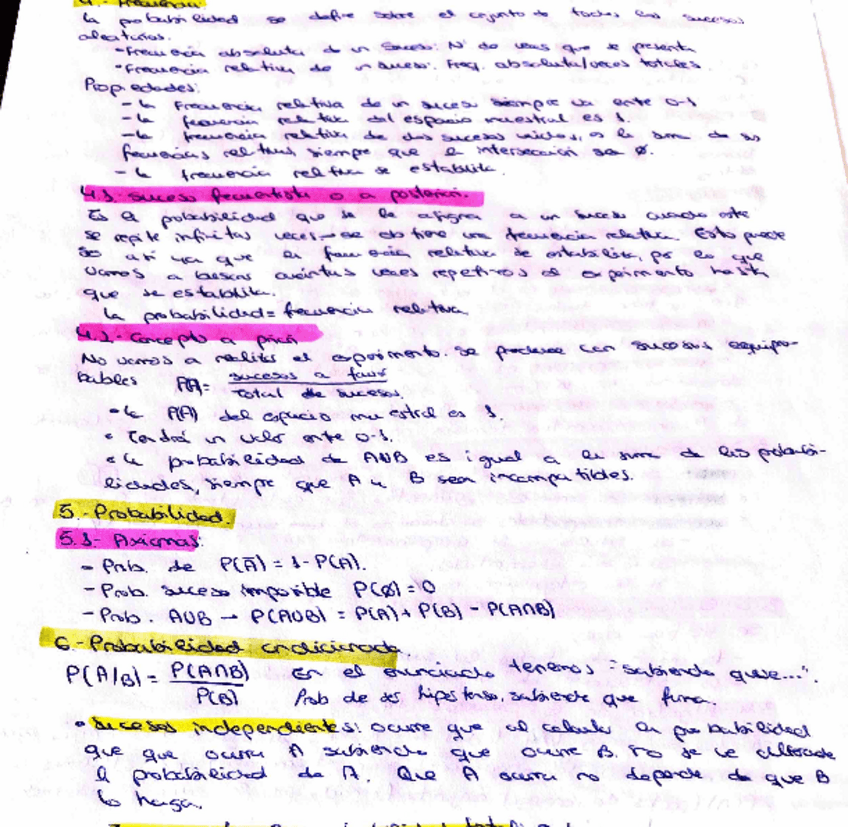 4.- Frecuencia
La probabilidad se define sobre el conjunto de todos los sucesos
aleatorios.
-Frecuencia absoluta de un suceso: Nº de veces que se presenta
-Frecuencia relativa de un suceso: Freq. absoluta/veces totales.
Propiedades:
- La frecuencia relativa de un suceso siempre va entre 0-1
- La frecuencia relativa del espacio muestral es 1.
- La frecuencia relativa de dos sucesos unidos, es la suma de sus
frecuencias relativas, siempre que la intersección sea Ø.
- La frecuencia relativa se estabiliza.
4.1- suceso frecuentista o a posteriori.
Es la probabilidad que se le asigna a un suceso cuando este
se repite infinitas veces → se obtiene una frecuencia relativa. Esto
es así ya que la frecuencia relativa se estabiliza, por lo que
vamos a buscar cuántas veces repetimos el experimento hasta
que se estabiliza.
La probabilidad = frecuencia relativa
4.2- Concepto a priori
No vamos a realizar el experimento. Se produce con sucesos equipro-
bables P(A)= sucesos a favor
total de sucesos.
- La P(A) del espacio muestral es 1.
• Tendrá un valor entre 0-1.
• La probabilidad de AUB es igual a la suma de las probabi-
lidades, siempre que A y B sean incompatibles.
5.- Probabilidad.
5.1- Axiomas:
- Prob. de P(Ā) = 1 - P(A).
- Prob. suceso imposible P(Ø) = 0
- Prob. AUB → P(AUB) = P(A) + P(B) - P(A∩B)
6.- Probabilidad condicionada.
P(A/B) = P(A∩B) En el enunciado tenemos "sabiendo que...".
P(B) Prob de ser hipertenso, sabiendo que fuma.
• Sucesos independientes: ocurre que al calcular la probabilidad
que que ocurra A sabiendo que ocurre B, no se ve alterada
la probabilidad de A. Que A ocurra no depende de que B
lo haga.